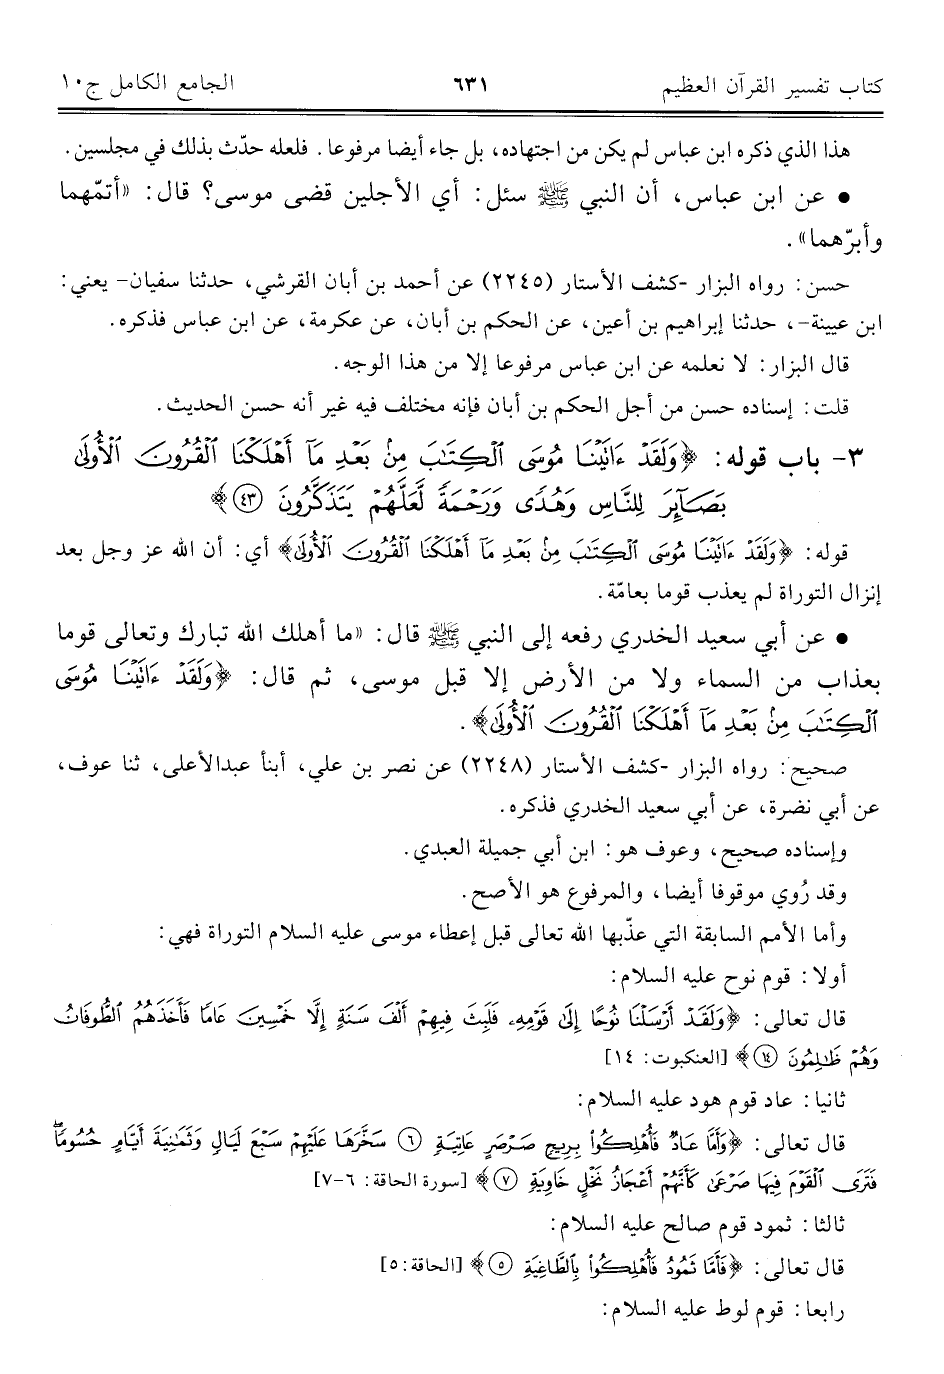 كتاب تفسير القرآن العظيم ٦٣١ الجامع الكامل ج١٠
هذا الذي ذكره ابن عباس لم يكن من اجتهاده، بل جاء أيضا مرفوعا. فلعله حدّث بذلك في مجلسين.
• عن ابن عباس، أن النبي ﷺ سئل: أي الأجلين قضى موسى؟ قال: «أتمّهما
وأبرّهما».
حسن: رواه البزار -كشف الأستار (٢٢٤٥) عن أحمد بن أبان القرشي، حدثنا سفيان- يعني:
ابن عيينة-، حدثنا إبراهيم بن أعين، عن الحكم بن أبان، عن عكرمة، عن ابن عباس فذكره.
قال البزار: لا نعلمه عن ابن عباس مرفوعا إلا من هذا الوجه.
قلت: إسناده حسن من أجل الحكم بن أبان فإنه مختلف فيه غير أنه حسن الحديث.
٣- باب قوله: ﴿وَلَقَدْ ءَاتَيْنَا مُوسَى ٱلْكِتَٰبَ مِنۢ بَعْدِ مَآ أَهْلَكْنَا ٱلْقُرُونَ ٱلْأُولَىٰ
بَصَآئِرَ لِلنَّاسِ وَهُدًى وَرَحْمَةً لَّعَلَّهُمْ يَتَذَكَّرُونَ ٤٣﴾
قوله: ﴿وَلَقَدْ ءَاتَيْنَا مُوسَى ٱلْكِتَٰبَ مِنۢ بَعْدِ مَآ أَهْلَكْنَا ٱلْقُرُونَ ٱلْأُولَىٰ﴾ أي: أن الله عز وجل بعد
إنزال التوراة لم يعذب قوما بعامّة.
• عن أبي سعيد الخدري رفعه إلى النبي ﷺ قال: «ما أهلك الله تبارك وتعالى قوما
بعذاب من السماء ولا من الأرض إلا قبل موسى، ثم قال: ﴿وَلَقَدْ ءَاتَيْنَا مُوسَى
ٱلْكِتَٰبَ مِنۢ بَعْدِ مَآ أَهْلَكْنَا ٱلْقُرُونَ ٱلْأُولَىٰ﴾.
صحيح: رواه البزار -كشف الأستار (٢٢٤٨) عن نصر بن علي، أبنأ عبدالأعلى، ثنا عوف،
عن أبي نضرة، عن أبي سعيد الخدري فذكره.
وإسناده صحيح، وعوف هو: ابن أبي جميلة العبدي.
وقد رُوي موقوفا أيضا، والمرفوع هو الأصح.
وأما الأمم السابقة التي عذّبها الله تعالى قبل إعطاء موسى عليه السلام التوراة فهي:
أولا: قوم نوح عليه السلام:
قال تعالى: ﴿وَلَقَدْ أَرْسَلْنَا نُوحًا إِلَىٰ قَوْمِهِۦ فَلَبِثَ فِيهِمْ أَلْفَ سَنَةٍ إِلَّا خَمْسِينَ عَامًا فَأَخَذَهُمُ ٱلطُّوفَانُ
وَهُمْ ظَٰلِمُونَ ١٤﴾ [العنكبوت: ١٤]
ثانيا: عاد قوم هود عليه السلام:
قال تعالى: ﴿وَأَمَّا عَادٌ فَأُهْلِكُوا۟ بِرِيحٍ صَرْصَرٍ عَاتِيَةٍ ٦ سَخَّرَهَا عَلَيْهِمْ سَبْعَ لَيَالٍ وَثَمَٰنِيَةَ أَيَّامٍ حُسُومًا ۖ
فَتَرَى ٱلْقَوْمَ فِيهَا صَرْعَىٰ كَأَنَّهُمْ أَعْجَازُ نَخْلٍ خَاوِيَةٍ ٧﴾ [سورة الحاقة: ٦-٧]
ثالثا: ثمود قوم صالح عليه السلام:
قال تعالى: ﴿فَأَمَّا ثَمُودُ فَأُهْلِكُوا۟ بِٱلطَّاغِيَةِ ٥﴾ [الحاقة: ٥]
رابعا: قوم لوط عليه السلام: